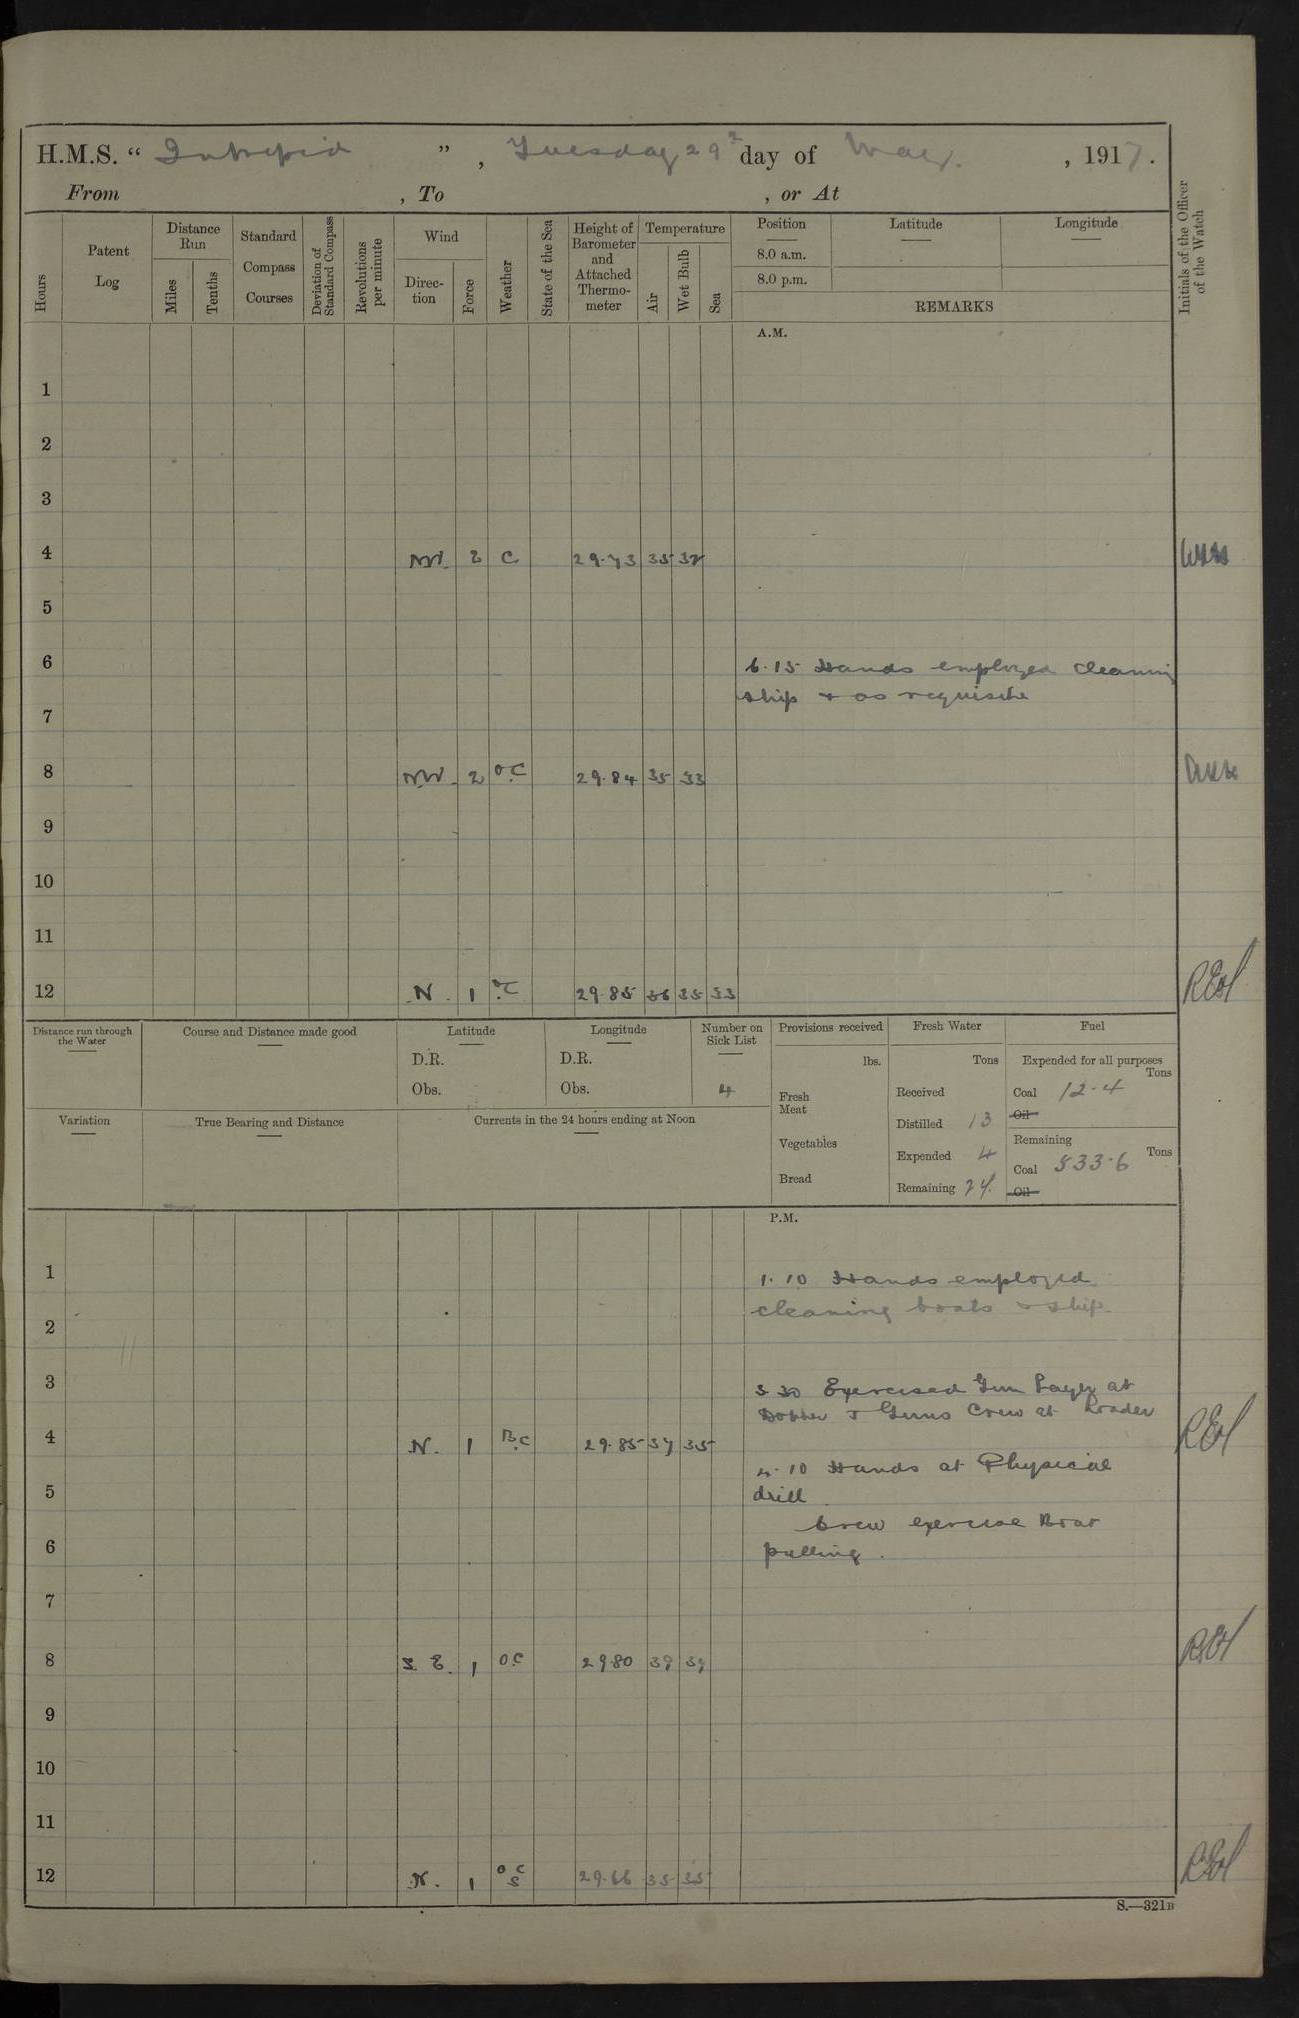 H.M.S. “ Intrepid ” , Tuesday 29 day of May. , 1917.
From , To , or At
Hours
Patent Log
Distance Run
Miles
Tenths
Standard Compass Courses
Deviation of Standard Compass
Revolutions per minute
Wind
Direc- tion
Force
Weather
State of the Sea
Height of Barometer and Attached Thermo- meter
Temperature
Air
Wet Bulb
Sea
Position
8.0 a.m.
8.0 p.m.
Latitude
Longitude
REMARKS
Initials of the Officer of the Watch
A.M.
1
2
3
4 NW. 2 C 29.73 35 32
5
6
6.15 Hands employed cleaning
ship + as requisite
7
8 NW. 2 O.C 29.84 35 33
9
10
11
12 N. 1 O.C 29.85 36 35 33
Distance run through the Water
Course and Distance made good
Latitude
D.R.
Obs.
Longitude
D.R.
Obs.
Number on Sick List
4
Provisions received
lbs.
Fresh Meat
Vegetables
Bread
Fresh Water
Tons
Received
Distilled 13
Expended 4
Remaining 24.
Fuel
Expended for all purposes
Tons
Coal 12.4
Oil
Remaining
Tons
Coal 533.6
Oil
Variation
True Bearing and Distance
Currents in the 24 hours ending at Noon
P.M.
1
1.10 Hands employed
cleaning boats + ship.
2
3
3 30 Exercised Gun Layers at
Dotter + Guns Crew at Loader
4 N. 1 B.C 29.85 37 35
4.10 Hands at Physical
drill
5
Crew exercise Boat
6
pulling.
7
8 S.E. 1 O.C 29.80 39
9
10
11
12 N. 1 O C S 29.66 35 35
S.—321B